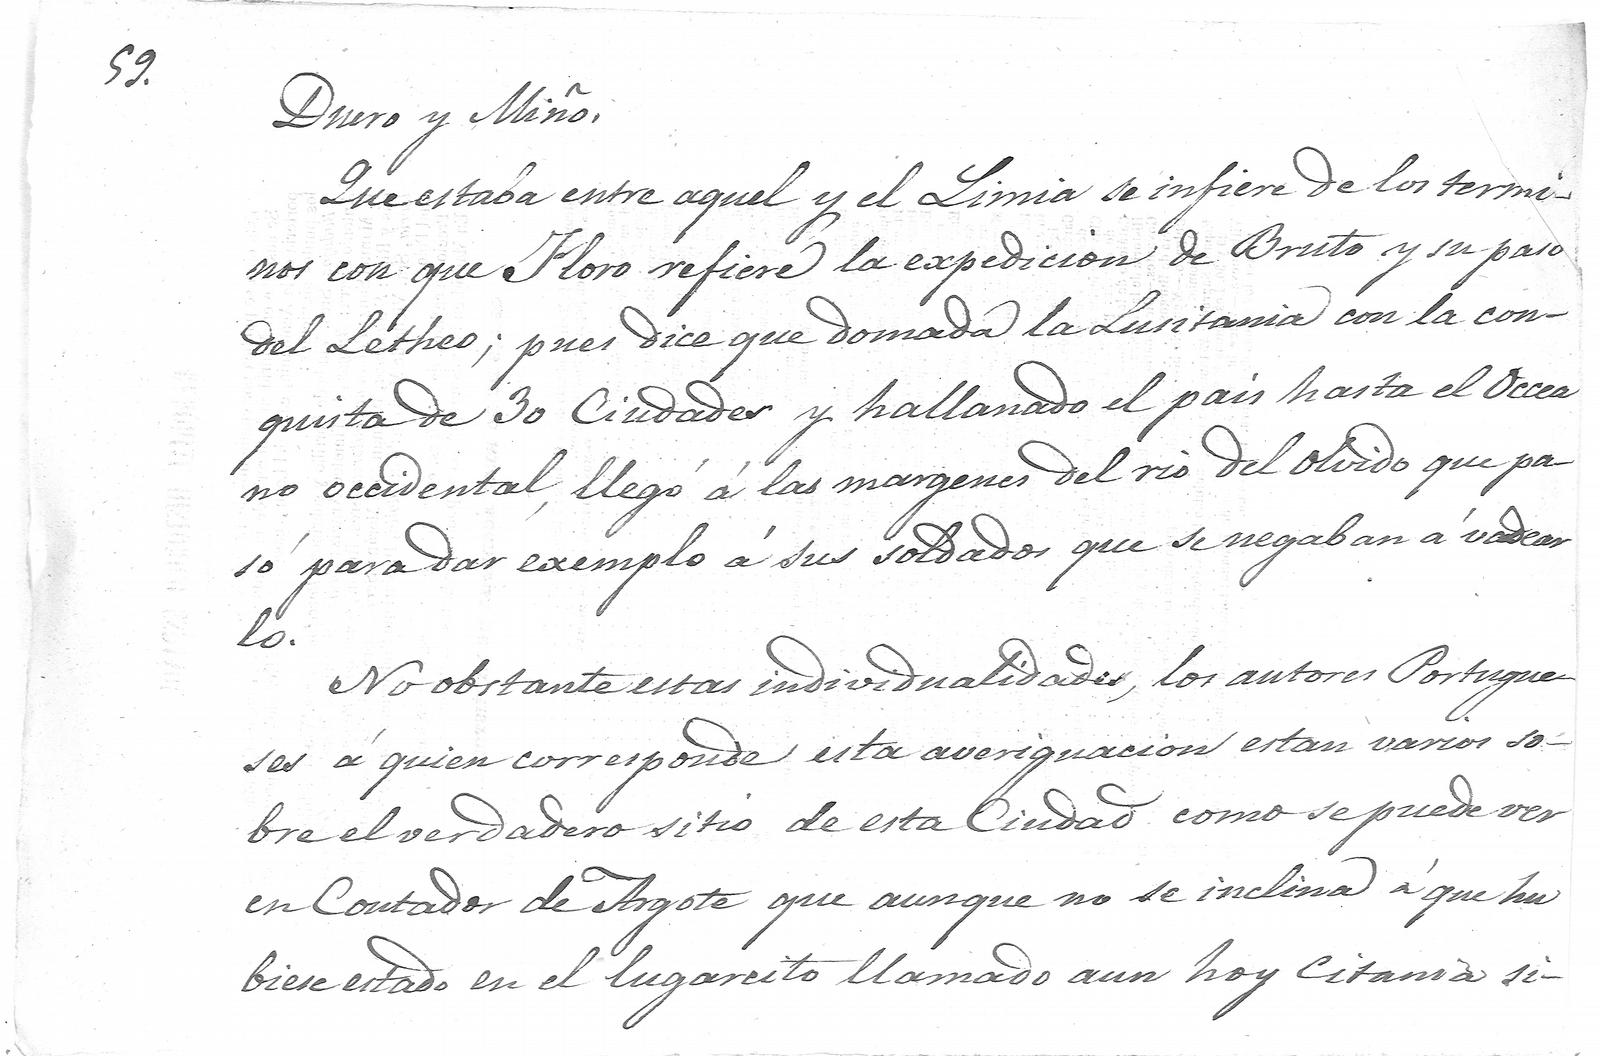 59.
Duero y Miño.
Que estaba entre aquel y el Limia se infiere de los termi-
nos con que Floro refiere la expedicion de Bruto y su paso
del Letheo; pues dice que domada la Lusitania con la con-
quista de 30 Ciudades y hallanado el pais hasta el Occea
no occidental, llegó á las margenes del rio del olvido que pa-
só para dar exemplo á sus soldados que se negaban á vadear
lo.
No obstante estas individualidades, los autores Portugue-
ses á quien corresponde esta averiguacion estan varios so-
bre el verdadero sitio de esta Ciudad como se puede ver
en Contador de Argote que aunque no se inclina á que hu
biese estado en el lugarcito llamado aun hoy Citania si-